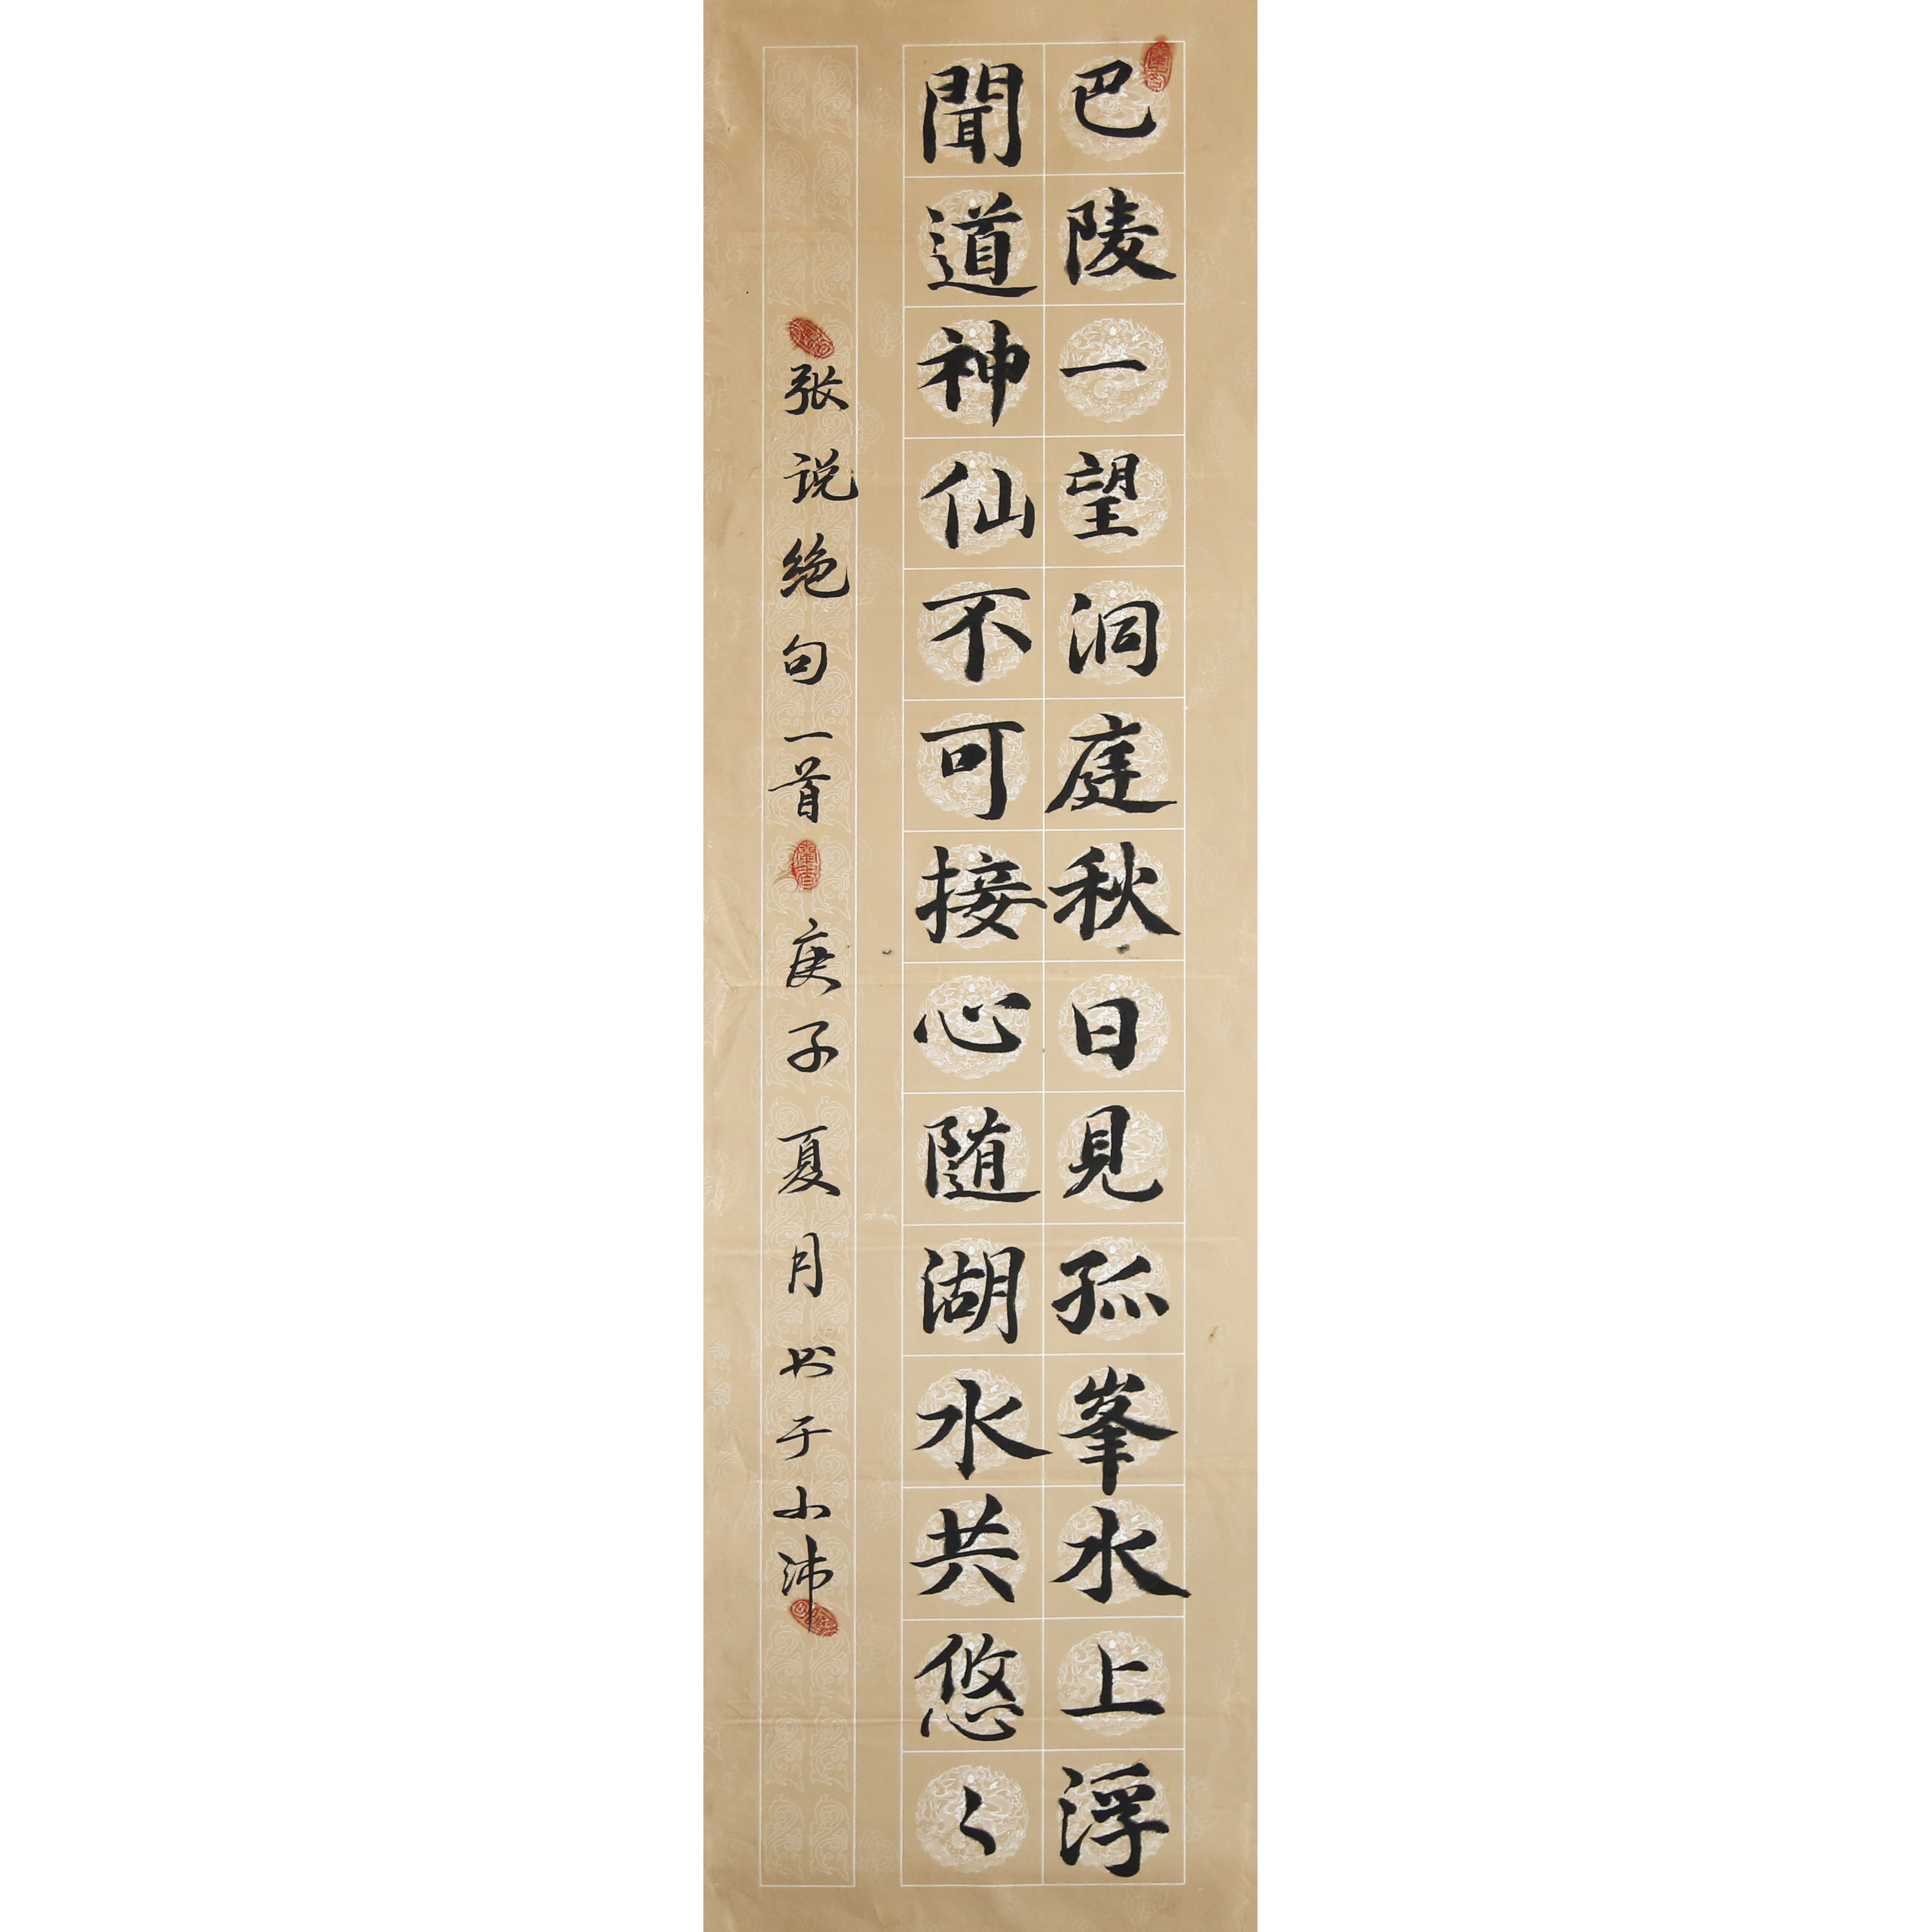 巴陵一望洞庭秋日見孤峯水上浮
聞道神仙不可接心随湖水共悠〻
张说绝句一首 庚子夏月书于小沛